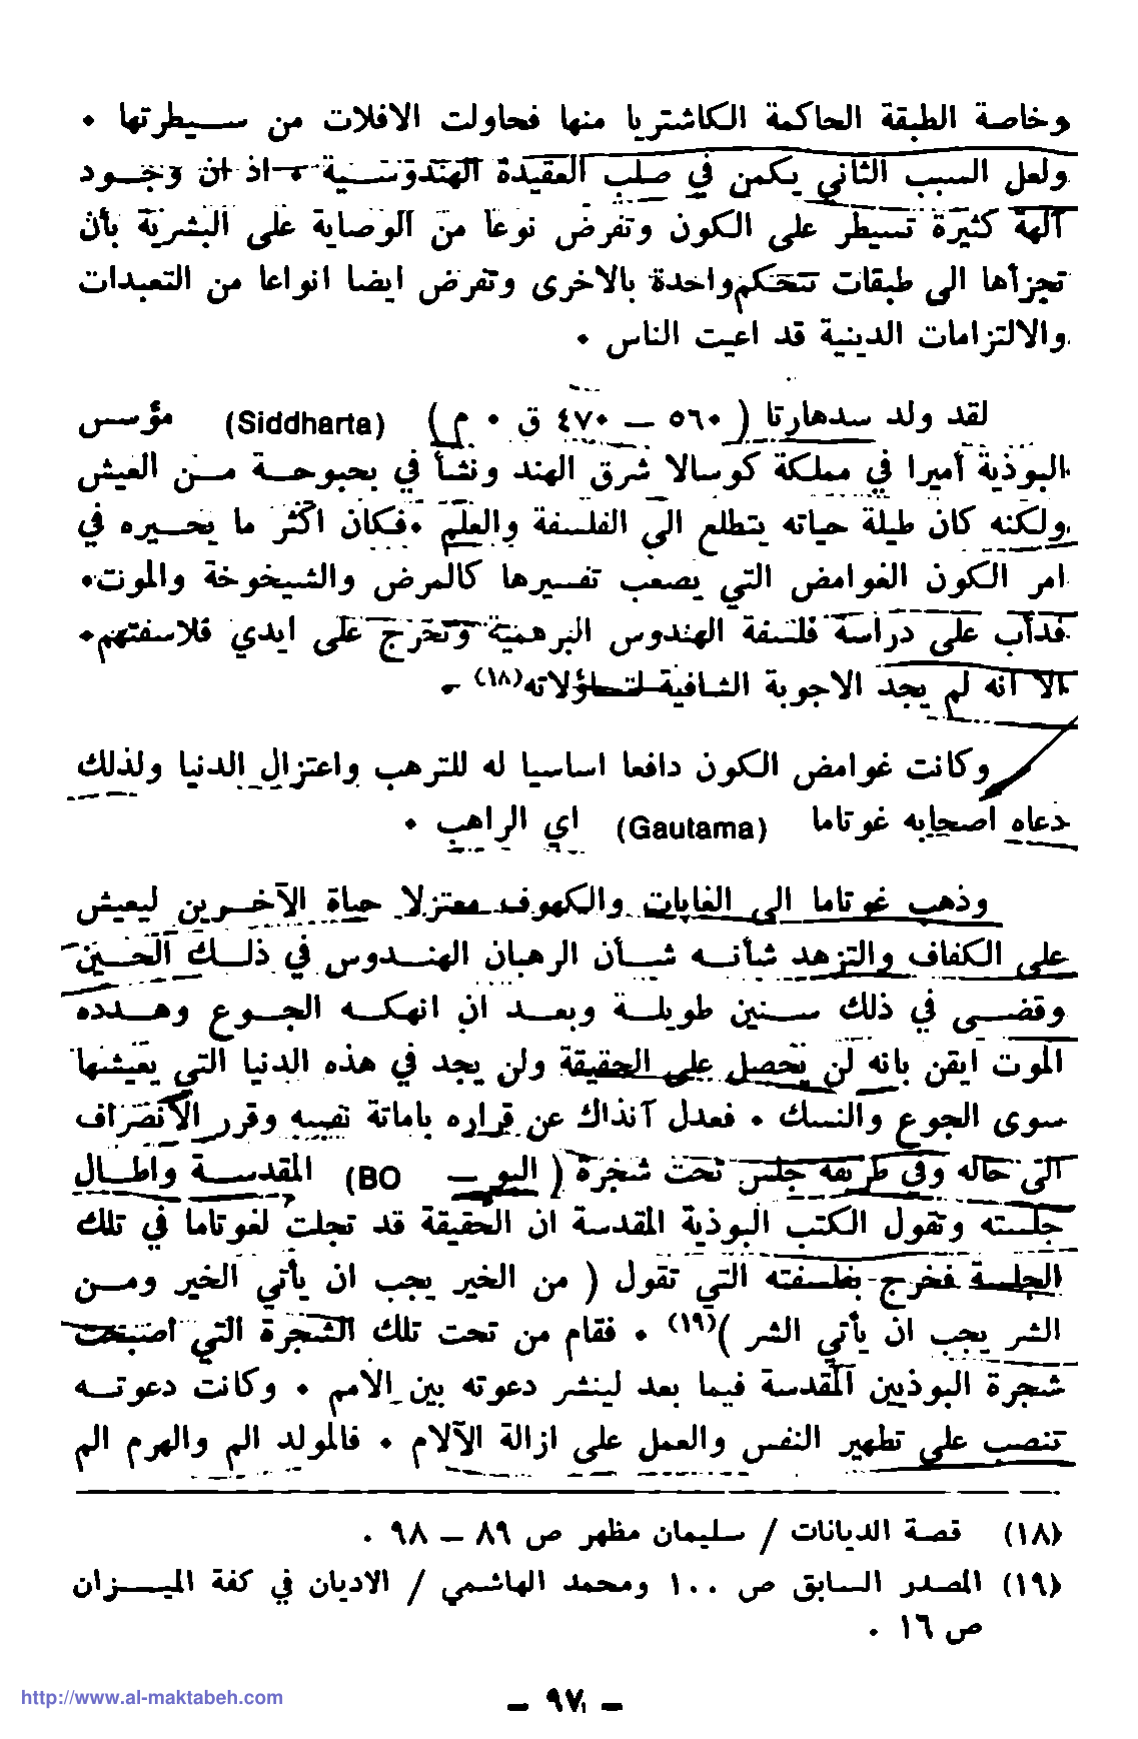 وخاصة الطبقة الحاكمة الكاشتريا منها فحاولت الافلات من سيطرتها .
ولعل السبب الثاني يكمن في صلب العقيدة الهندوسية . اذ ان وجود
آلهة كثيرة تسيطر على الكون وتفرض نوعا من الوصاية على البشرية بأن
تجزأها الى طبقات تتحكم واحدة بالاخرى وتفرض ايضا انواعا من التعبدات
والالتزامات الدينية قد اعيت الناس .
لقد ولد سدهارتا ( ٥٦٠ – ٤٧٠ ق . م ) (Siddharta) مؤسس
البوذية أميرا في مملكة كوسالا شرق الهند ونشأ في بحبوحة من العيش
ولكنه كان طيلة حياته يتطلع الى الفلسفة والعلم . فكان اكثر ما يحيره في
امر الكون الغوامض التي يصعب تفسيرها كالمرض والشيخوخة والموت .
فدأب على دراسة فلسفة الهندوس البرهمية وتخرج على ايدي فلاسفتهم .
الا انه لم يجد الاجوبة الشافية لتساؤلاته(١٨) .
وكانت غوامض الكون دافعا اساسيا له للترهب واعتزال الدنيا ولذلك
دعاه اصحابه غوتاما (Gautama) اي الراهب .
وذهب غوتاما الى الغابات والكهوف معتزلا حياة الآخرين ليعيش
على الكفاف والتزهد شأنه شأن الرهبان الهندوس في ذلك الحين
وقضى في ذلك سنين طويلة وبعد ان انهكه الجوع وهدده
الموت ايقن بانه لن يحصل على الحقيقة ولن يجد في هذه الدنيا التي يعيشها
سوى الجوع والنسك . فعدل آنذاك عن قراره باماتة نفسه وقرر الانصراف
الى حاله وفي طريقه جلس تحت شجرة ( البو – BO) المقدسة واطال
جلسته وتقول الكتب البوذية المقدسة ان الحقيقة قد تجلت لغوتاما في تلك
الجلسة فخرج بفلسفته التي تقول ( من الخير يجب ان يأتي الخير ومن
الشر يجب ان يأتي الشر )(١٩) . فقام من تحت تلك الشجرة التي اصبحت
شجرة البوذيين المقدسة فيما بعد لينشر دعوته بين الامم . وكانت دعوته
تنصب على تطهير النفس والعمل على ازالة الآلام . فالمولد الم والهرم الم
(١٨) قصة الديانات / سليمان مظهر ص ٨٩ – ٩٨ .
(١٩) المصدر السابق ص ١٠٠ ومحمد الهاشمي / الاديان في كفة الميزان
ص ١٦ .
– ٩٧ –
http://www.al-maktabeh.com